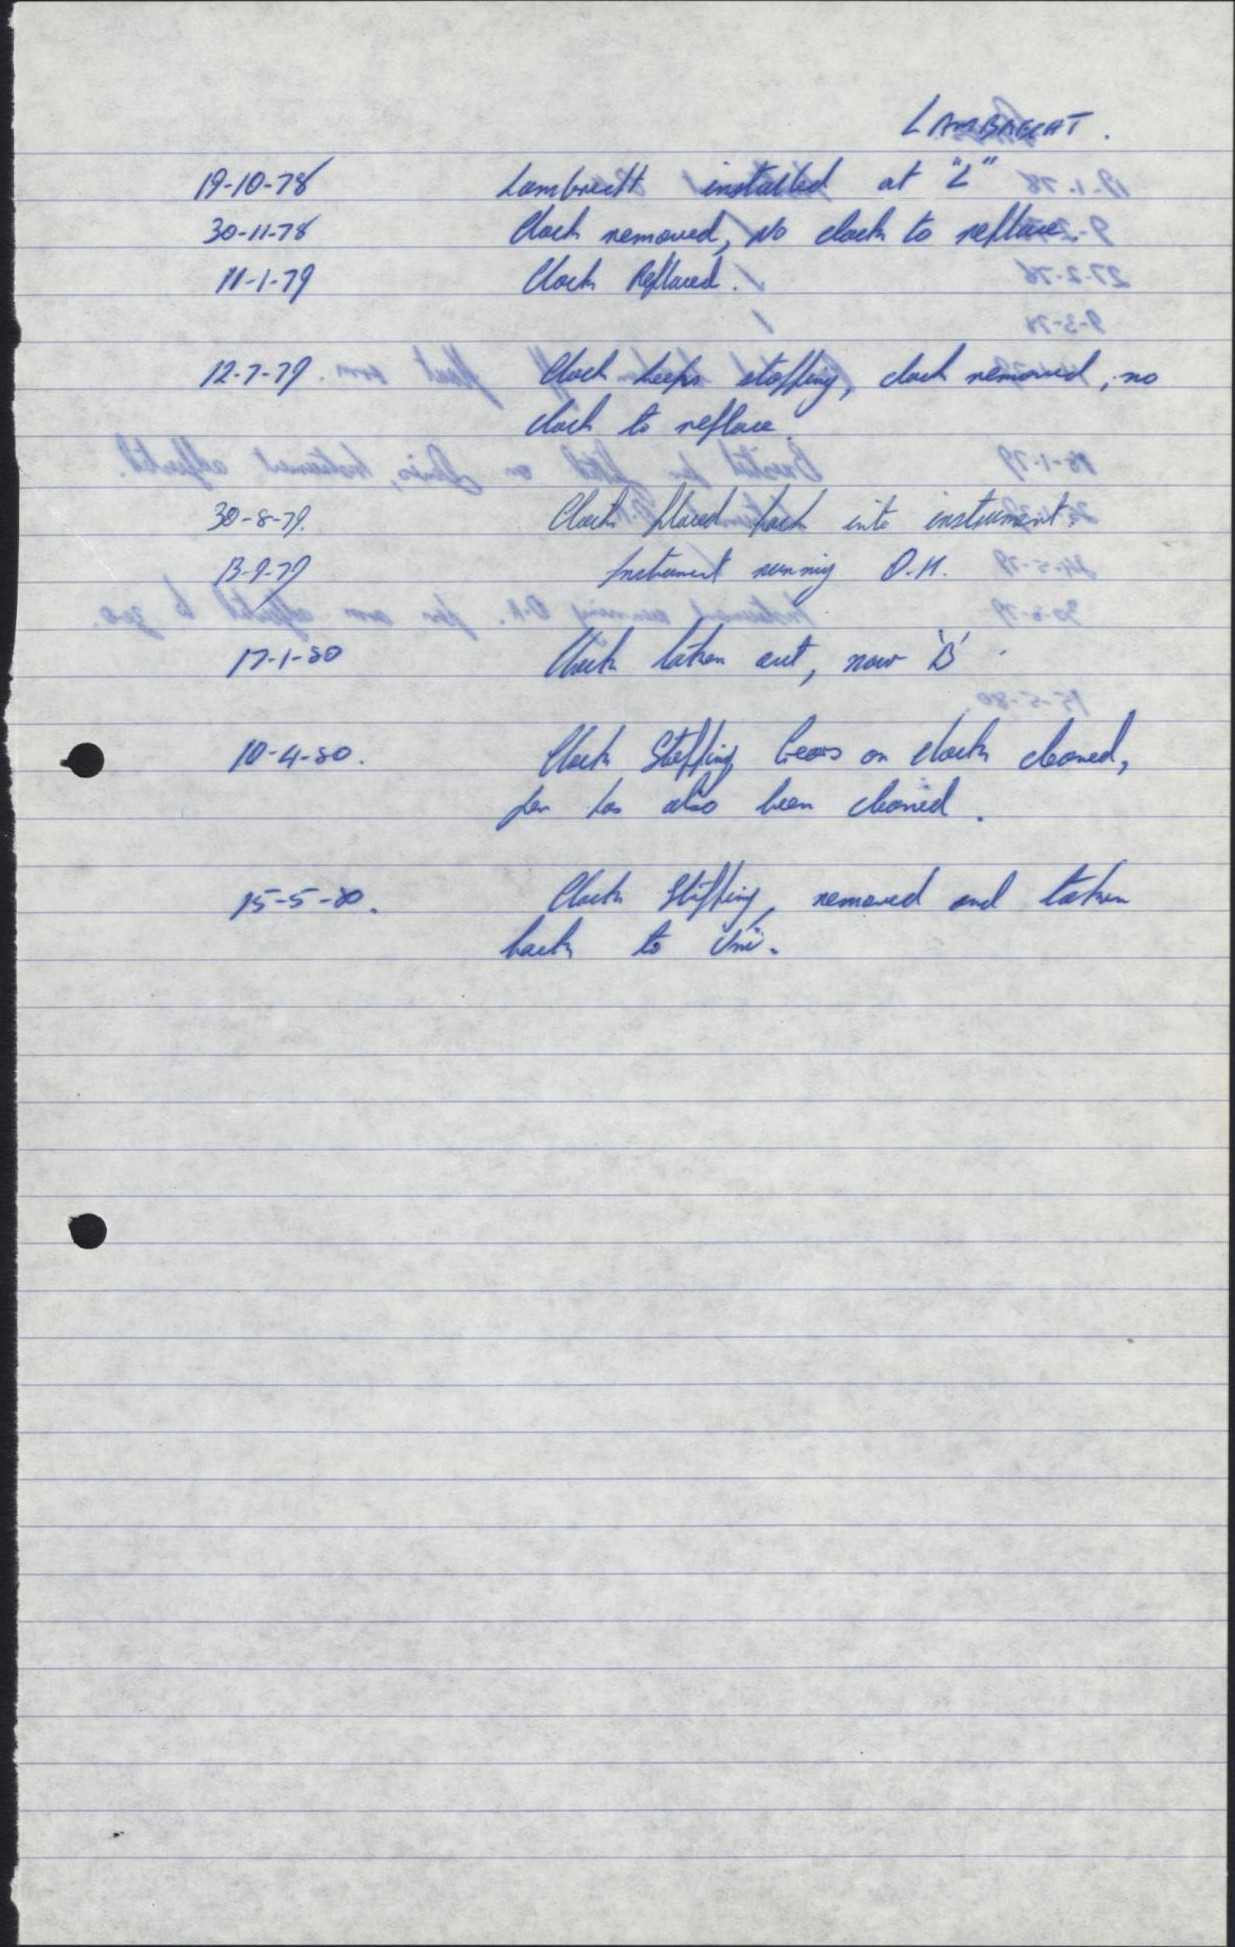 LAMBRECHT.
19-10-78 Lambrecht installed at "L"
30-11-78 Clock removed, no clock to replace.
11-1-79 Clock Replaced.
12-7-79. Clock keeps stopping, clock removed, no
clock to replace.
30-8-79. Clock placed back into instrument.
13-9-79 Instrument running O.K.
17-1-80 Clock taken out, now 'B'
10-4-80. Clock Stopping, Gears on clock cleaned,
pen has also been cleaned.
15-5-80. Clock Stopping, removed and taken
back to Uni.